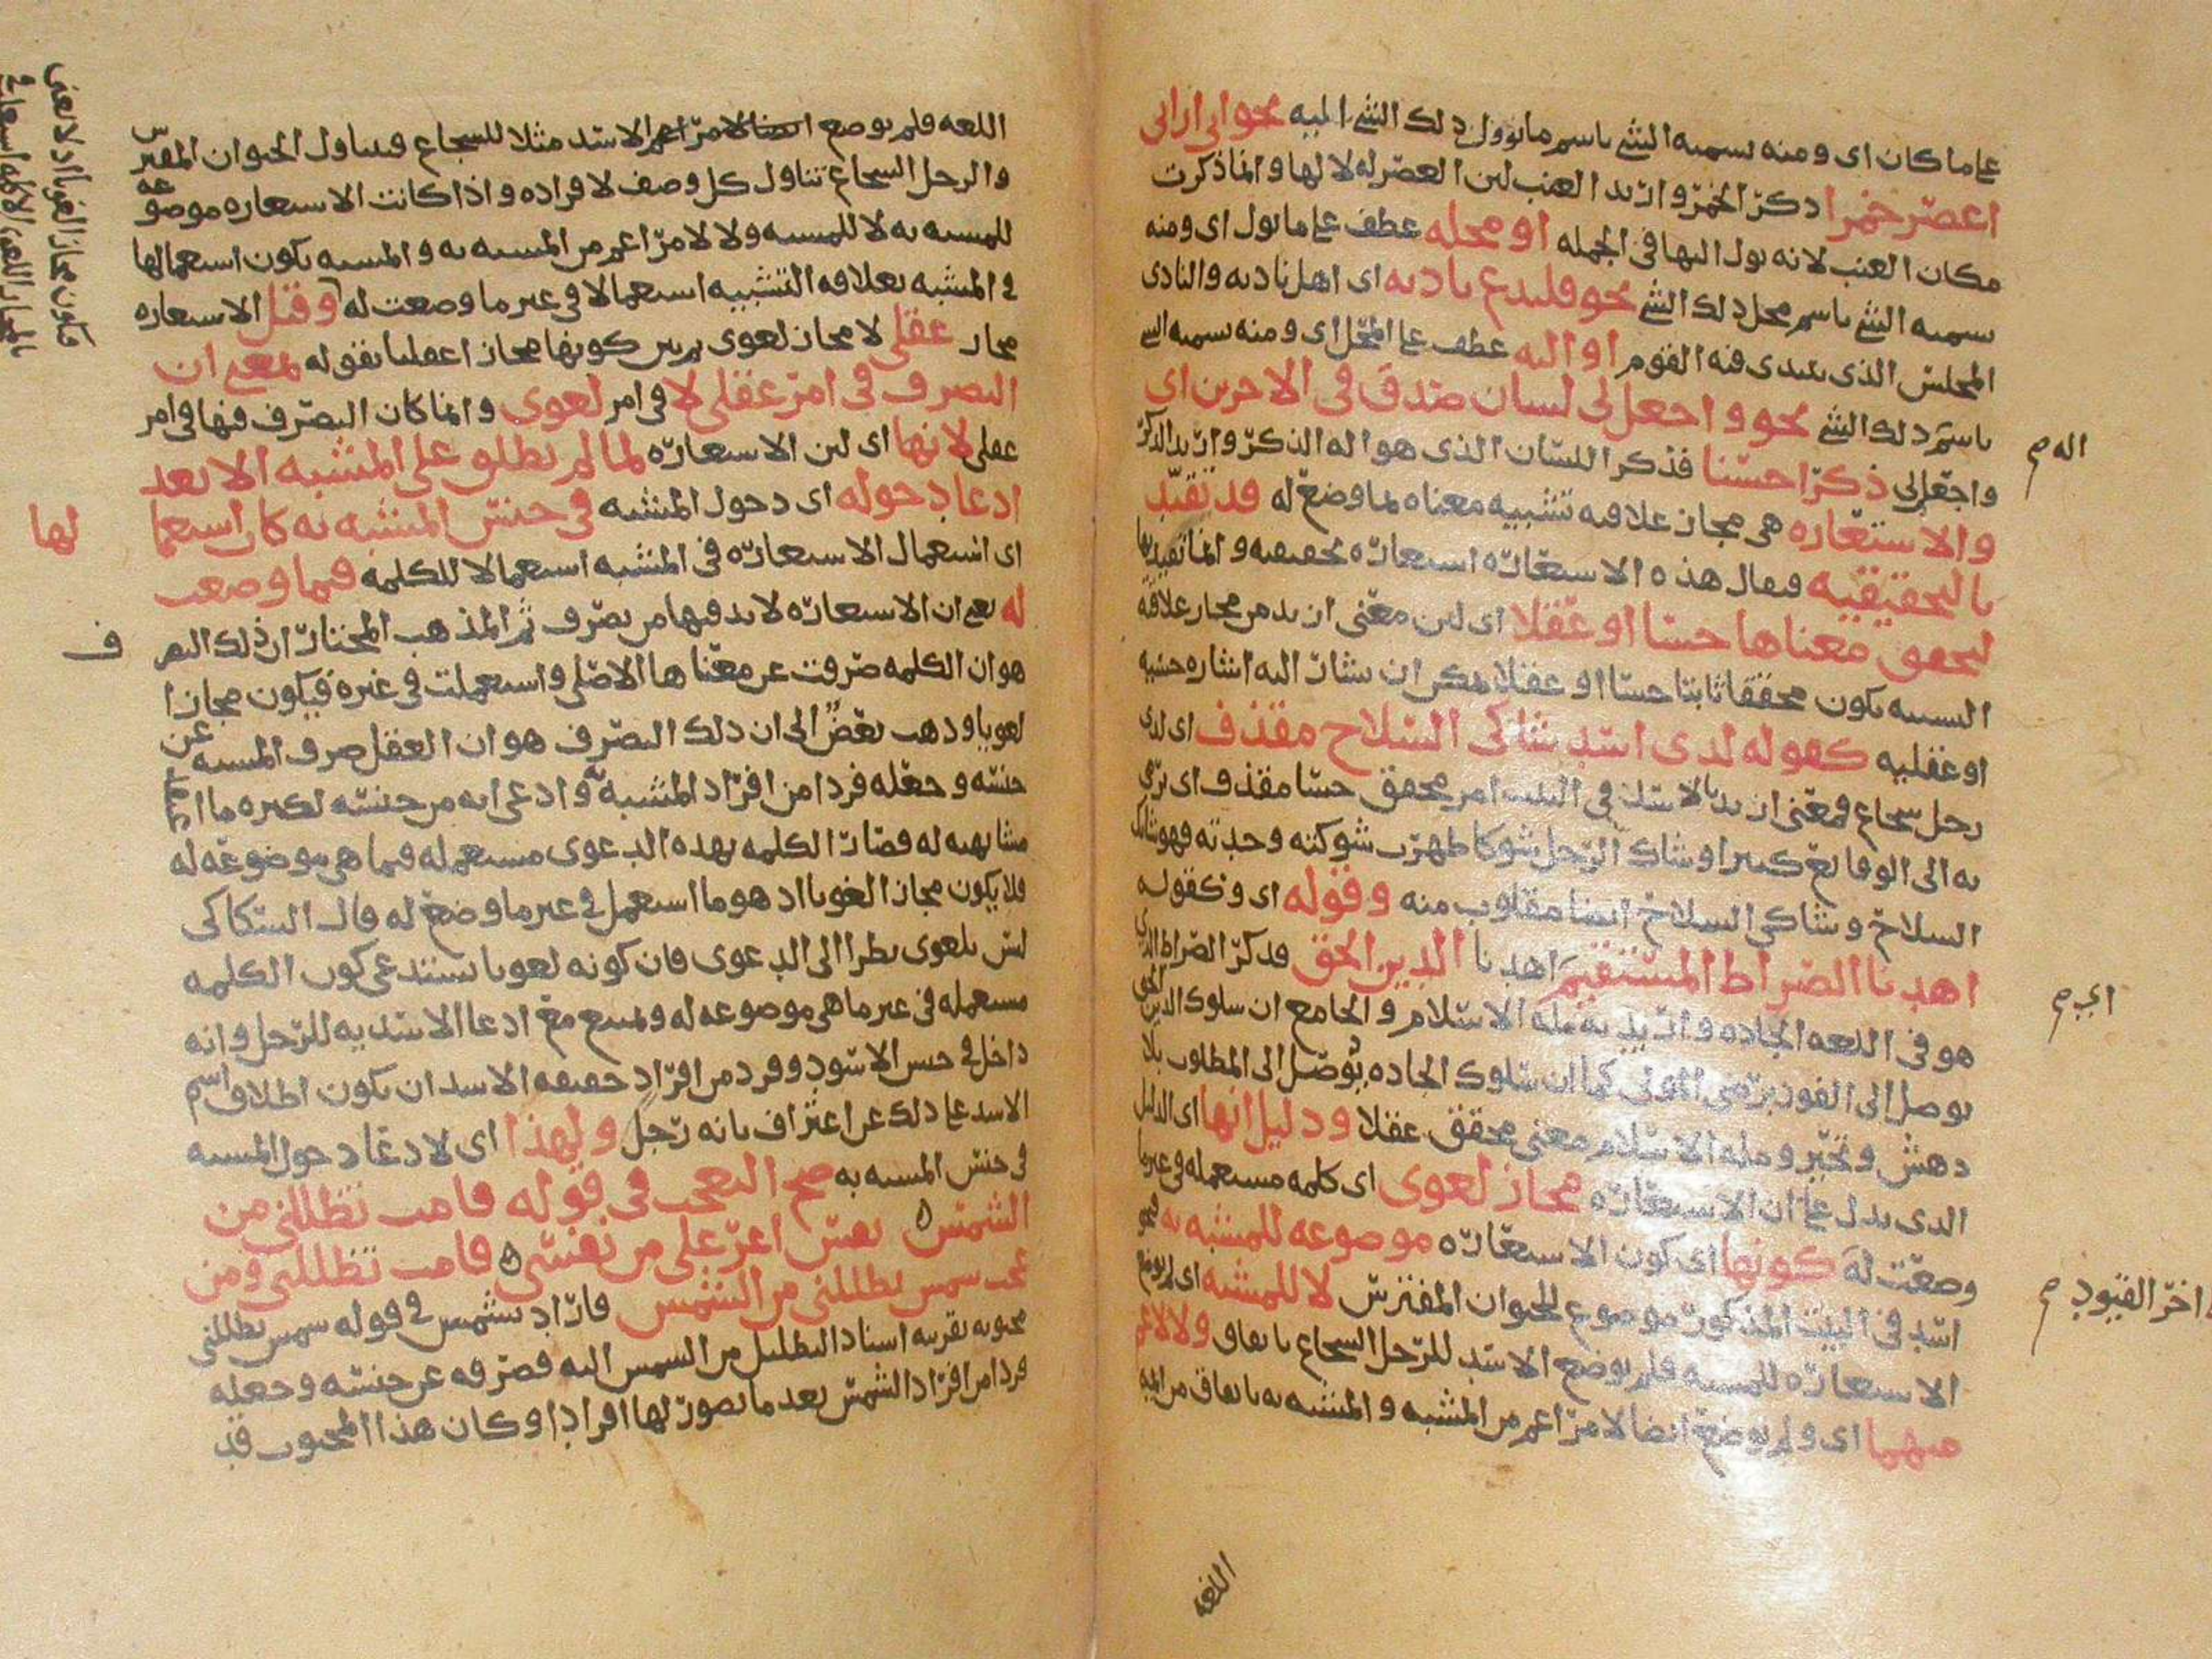 على ما كان اى ومنه تسميه الشئ باسم ما يوول ذلك الشئ اليه نحو انى ارانى
اعصر خمرا ذكر الخمر واريد العنب لان العصر له لا لها وانما ذكرت
مكان العنب لانه يول اليها فى الجمله او محله عطف على ما يول اى ومنه
تسميه الشئ باسم محل ذلك الشئ نحو فليدع ناديه اى اهل ناديه والنادى
المجلس الذى ينتدى فيه القوم او اليه عطف على المحل اى ومنه تسميه الشئ
باسم ذلك الشئ نحو واجعل لى لسان صدق فى الاخرين اى
اله م
واجعل لى ذكرا حسنا فذكر اللسان الذى هو اله الذكر واريد الذكر
والاستعاره هى مجاز علاقته تشبيه معناه لما وضع له قد تقيد
بالتحقيقيه فيقال هذه الاستعاره استعاره تحقيقيه وانما تقيد بها
لتحقق معناها حسا او عقلا اى لان معنى اريد من مجاز علاقه
التشبيه يكون محققا ثابتا حسا او عقلا يمكن ان يشار اليه اشاره حسيه
او عقليه كقوله لدى اسد شاكى السلاح مقذف اى لدى
رجل شجاع فمعنى اريد بالاسد فى البيت امر محقق حسا مقذف اى رمى
به الى الوقايع كثيرا وشاك الرجل شوكا ظهرت شوكته وحدته فهو شايك
السلاح وشاكى السلاح ايضا مقلوب منه وقوله اى وكقوله
اهدنا الصراط المستقيم اهدنا الدين الحق فذكر الصراط الذى
هو فى اللغه الجاده واريد به مله الاسلام والجامع ان سلوك الدين الحق
اى ب م
يوصل الى الفوز برضى المولى كما ان سلوك الجاده يوصل الى المطلوب بلا
دهش وتحير ومله الاسلام معنى محقق عقلا ودليل انها اى الدليل
الذى يدل على ان الاستعاره مجاز لغوى اى كلمه مستعمله فى غير ما
وضعت له كونها اى كون الاستعاره موضوعه للمشبه به نحو
اخر القيود م
اسد فى البيت المذكور موضوع للحيوان المفترس لا للمشبه اى لم يوضع
الاستعاره للمشبه فلم يوضع الاسد للرجل الشجاع باتفاق ولا لاعم
منهما اى ولم يوضع ايضا لامر اعم من المشبه والمشبه به باتفاق من ايمه
اللغه
اللغه فلم يوضع ايضا لامر اعم الاسد مثلا للشجاع فيتناول الحيوان المفترس
والرجل الشجاع تناول كل وصف لافراده واذا كانت الاستعاره موضوعه
للمشبه به لا للمشبه ولا لامر اعم من المشبه به والمشبه يكون استعمالها
فى المشبه بعلاقه التشبيه استعمالا فى غير ما وضعت له وقيل الاستعاره
مجاز عقلى لا مجاز لغوى ثم بين كونها مجازا عقليا بقوله بمعنى ان
التصرف فى امر عقلى لا فى امر لغوى وانما كان التصرف فيها فى امر
عقلى لانها اى لان الاستعاره لما لم تطلق على المشبه الا بعد
ادعا دخوله اى دخول المشبه فى جنس المشبه به كان استعما
لها
اى استعمال الاستعاره فى المشبه استعمالا للكلمه فيما وضعت
له يعنى ان الاستعاره لا بد فيها من تصرف ثم المذهب المختار ان ذلك التصر
ف
هو ان الكلمه صرفت عن معناها الاصلى واستعملت فى غيره فيكون مجازا
لغويا وذهب بعض الى ان ذلك التصرف هو ان العقل صرف المشبه عن
جنسه وجعله فردا من افراد المشبه به وادعى انه من جنسه لكثره ما
مشابهته له فصارت الكلمه بهذه الدعوى مستعمله فيما هى موضوعه له
فلا يكون مجازا لغويا اذ هو ما استعمل فى غير ما وضع له قال السكاكى
ليس بلغوى نظرا الى الدعوى فان كونه لغويا يستدعى كون الكلمه
مستعمله فى غير ما هى موضوعه له ويمتنع مع ادعا الاسديه للرجل وانه
داخل فى جنس الاسود وفرد من افراد حقيقه الاسد ان يكون اطلاق اسم
الاسد على ذلك عن اعتراف بانه رجل ولهذا اى لادعا دخول المشبه
فى جنس المشبه به صح التعجب فى قوله قامت تظللنى من
الشمس ه نفس اعز على من نفسى ه قامت تظللنى ومن
عجب شمس تظللنى من الشمس فاراد بشمس فى قوله شمس تظللنى
محبوبه بقرينه اسناد التظليل من الشمس اليه فصرفه عن جنسه وجعله
فردا من افراد الشمس بعد ما تصور لها افرادا وكان هذا المحبوب قد